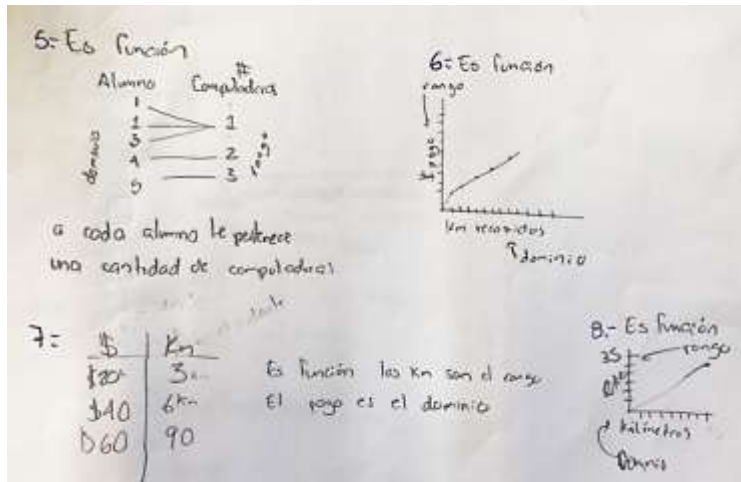 5:- Es función
Alumno # Computadoras
1
1 1
3
4 2
5 3
dominio
rango
a cada alumno le pertenece
una cantidad de computadoras
6: Es función
rango
$ pago
Km recorridos
dominio
7:
$ Km
$20 3
$40 6 Km
60 90
Es función los Km son el rango
El pago es el dominio
8.- Es función
35
rango
Kilometros
Dominio